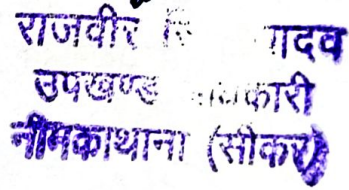 राजवीर यादव
उपखण्ड अधिकारी
नीमकाथाना (सीकर)